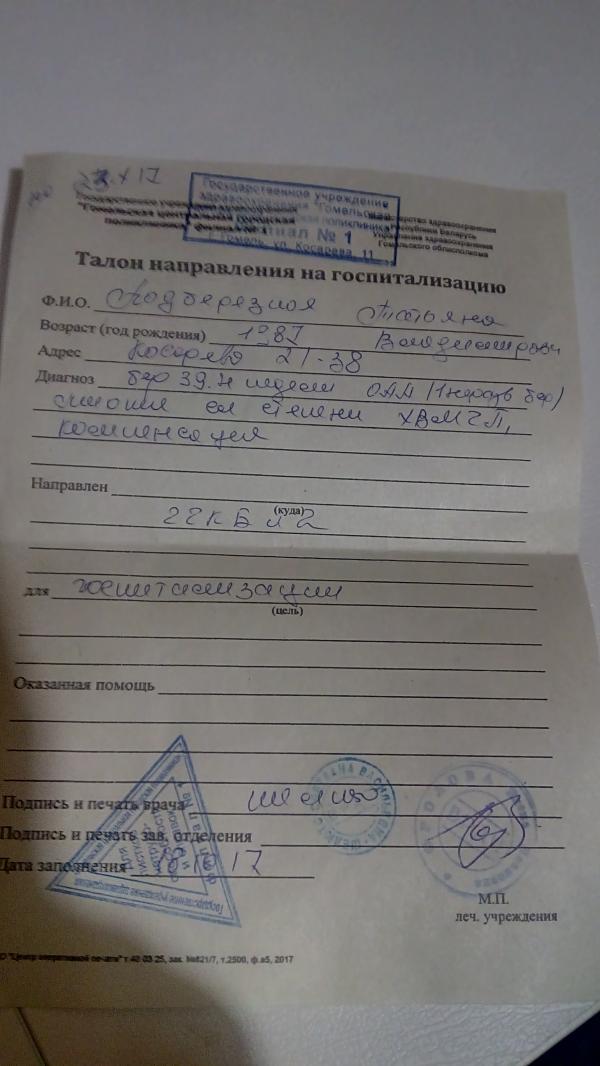 23 X 17
Государственное учреждение
здравоохранения "Гомельская
поликлиника
филиал № 1
г. Гомель, ул. Косарева, 11
Государственное учреждение здравоохранения
"Гомельская центральная городская
поликлиника" филиал № 1
Министерство здравоохранения
Республики Беларусь
Управление здравоохранения
Гомельского облисполкома
Талон направления на госпитализацию
Ф.И.О. Подберезная Татьяна
Возраст (год рождения) 1987 Владимировн
Адрес Косарева 21-38
Диагноз бер 39.4 недели ОАА
миопия степени
компенсация
Направлен
(куда)
ГГКБ № 2
для госпитализации
(цель)
Оказанная помощь
Подпись и печать врача
Подпись и печать зав. отделения
Дата заполнения 17
М.П.
леч. учреждения
"Центр оперативной печати" т.40-03-25, зак. №621/7, т.2500, ф.а5, 2017